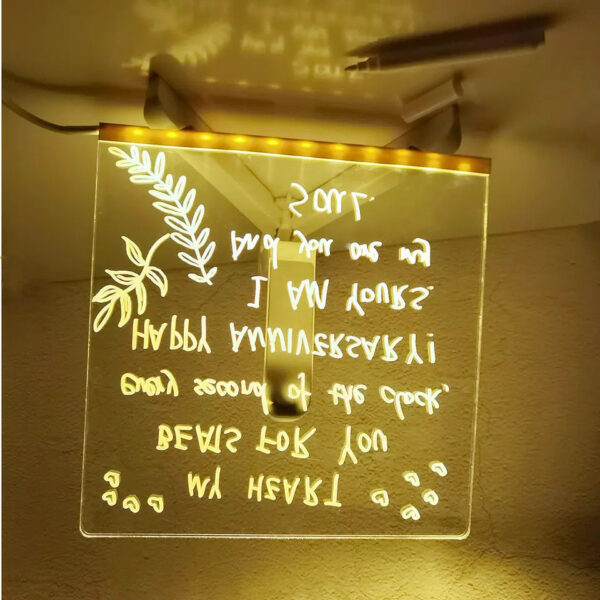 MY HEART
BEATS FOR YOU
every second of the clock,
HAPPY ANNIVERSARY!
I AM YOURS.
And you are my
SOUL.